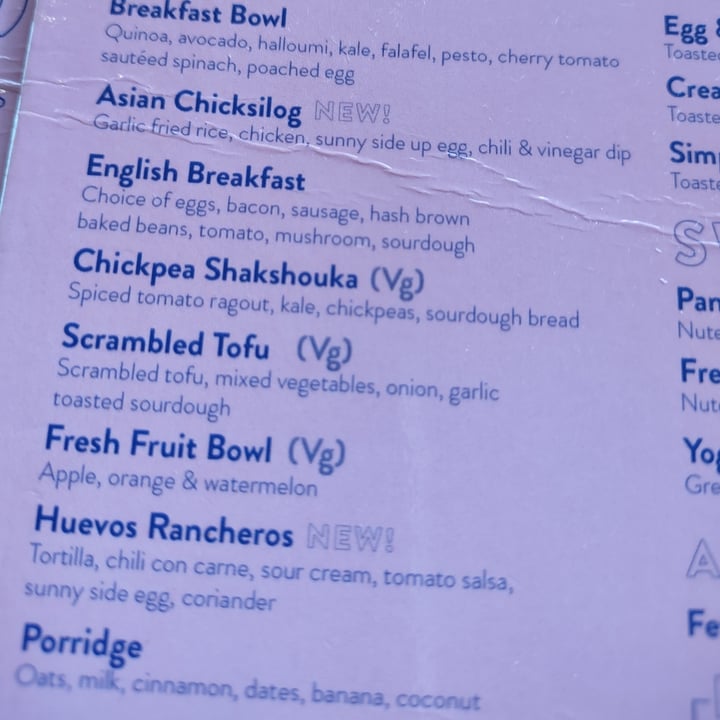 Breakfast Bowl
Quinoa, avocado, halloumi, kale, falafel, pesto, cherry tomato
sautéed spinach, poached egg
Asian Chicksilog NEW!
Garlic fried rice, chicken, sunny side up egg, chili & vinegar dip
English Breakfast
Choice of eggs, bacon, sausage, hash brown
baked beans, tomato, mushroom, sourdough
Chickpea Shakshouka (Vg)
Spiced tomato ragout, kale, chickpeas, sourdough bread
Scrambled Tofu (Vg)
Scrambled tofu, mixed vegetables, onion, garlic
toasted sourdough
Fresh Fruit Bowl (Vg)
Apple, orange & watermelon
Huevos Rancheros NEW!
Tortilla, chili con carne, sour cream, tomato salsa,
sunny side egg, coriander
Porridge
Oats, milk, cinnamon, dates, banana, coconut
Egg
Toaste
Crea
Toaste
Sim
Toaste
S
Pan
Nute
Fre
Nut
Yog
Gre
A
Fe